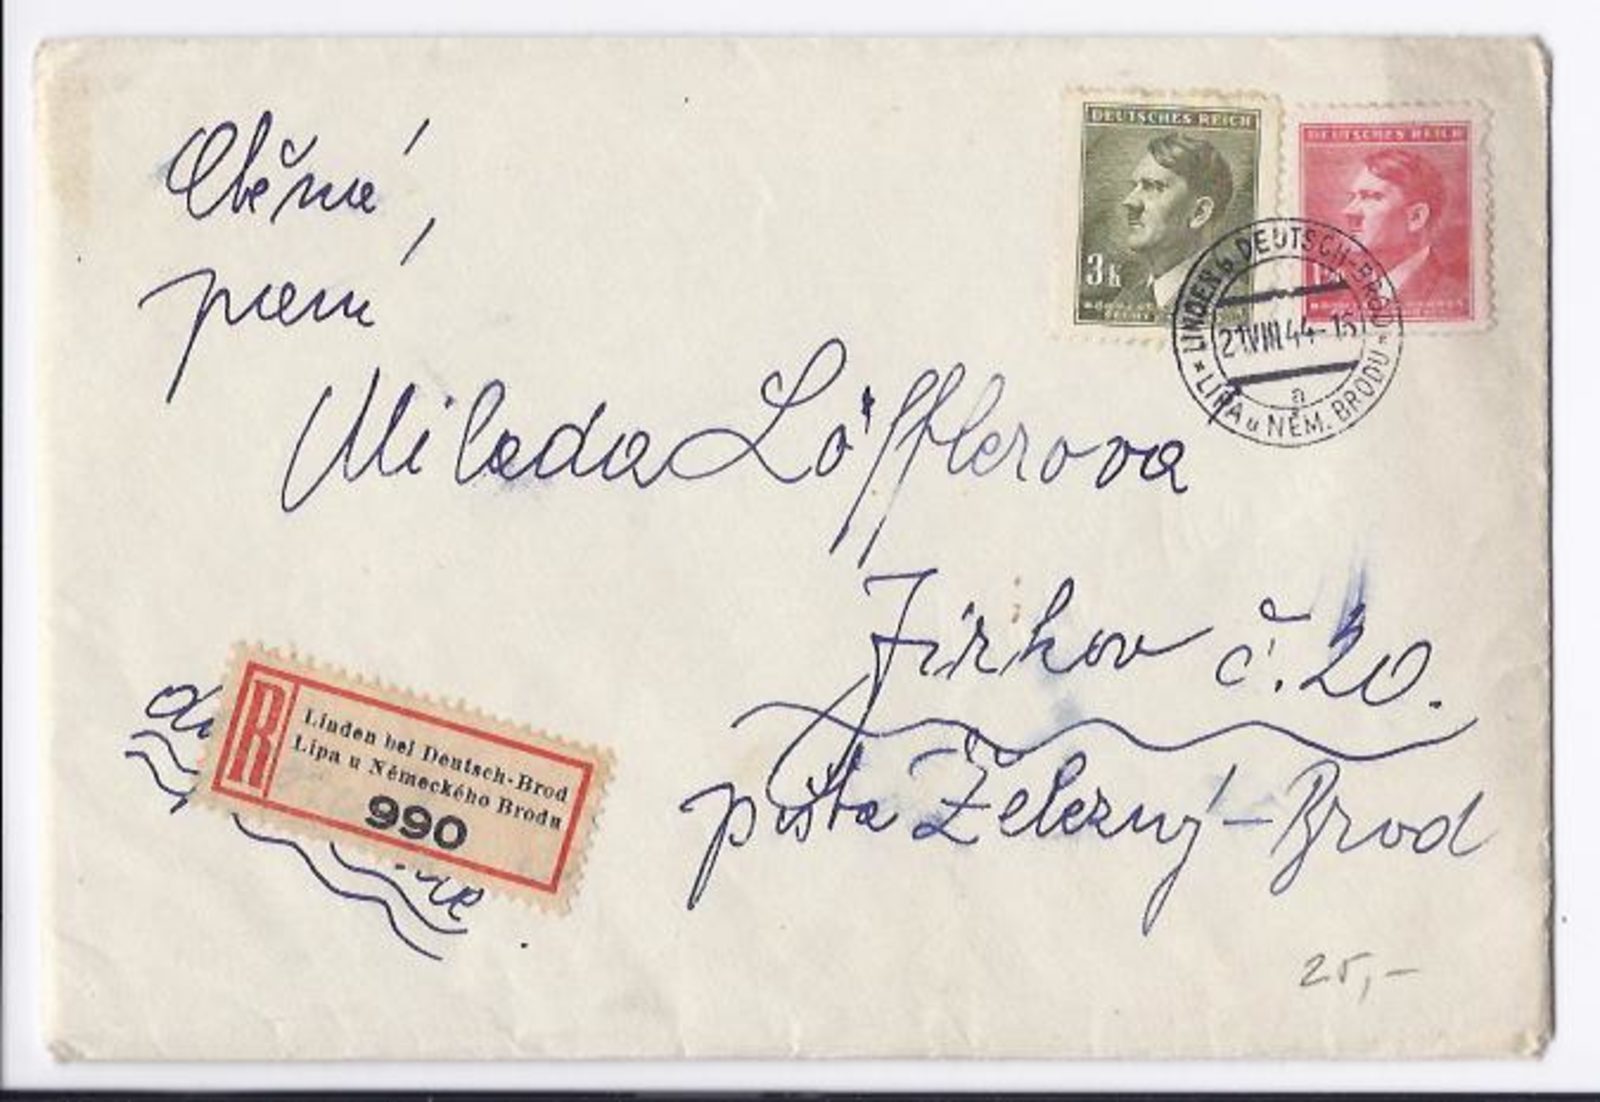 DEUTSCHES REICH
3K
DEUTSCHES REICH
LINDEN b. DEUTSCH-BROD
21.VIII.44-15
a
* LÍPA u NĚM. BRODU *
paní
Milada Löfflerova
Jirkov č. 20.
pošta Železný-Brod
R
Linden bei Deutsch-Brod
Lípa u Německého Brodu
990
25,-